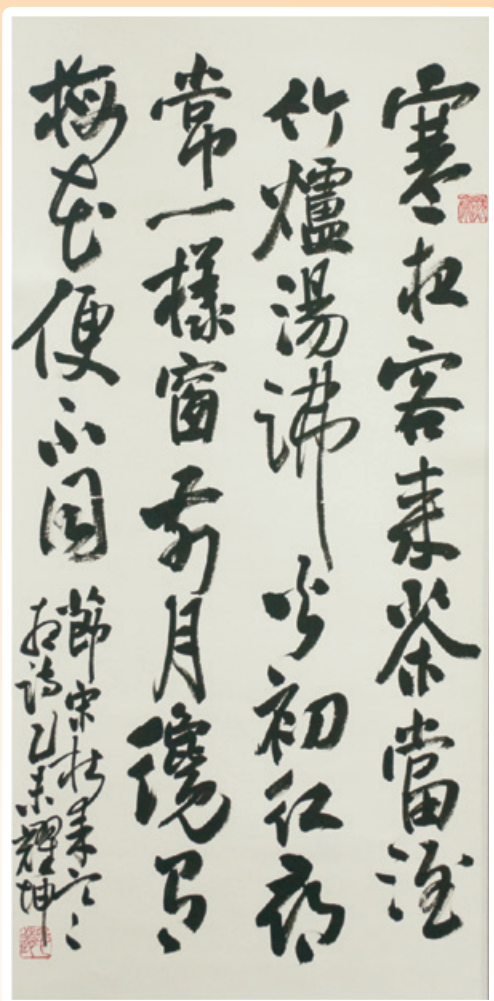 寒夜客來茶當酒
竹爐湯沸火初紅尋
常一樣窗前月纔有
梅花便不同
節宋杜耒寒
夜詩乙未耀坤